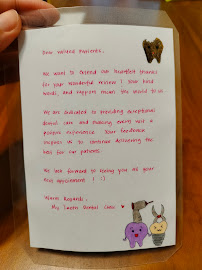 Dear Valued Patients,
We want to extend our heartfelt thanks
for your wonderful review! Your kind
words, and support mean the world to us.
We are dedicated to providing exceptional
dental care and making every visit a
positive experience. Your feedback
inspires us to continue delivering the
best for our patients.
We look forward to seeing you at your
next appointment! :)
Warm Regards,
My Dental Clinic